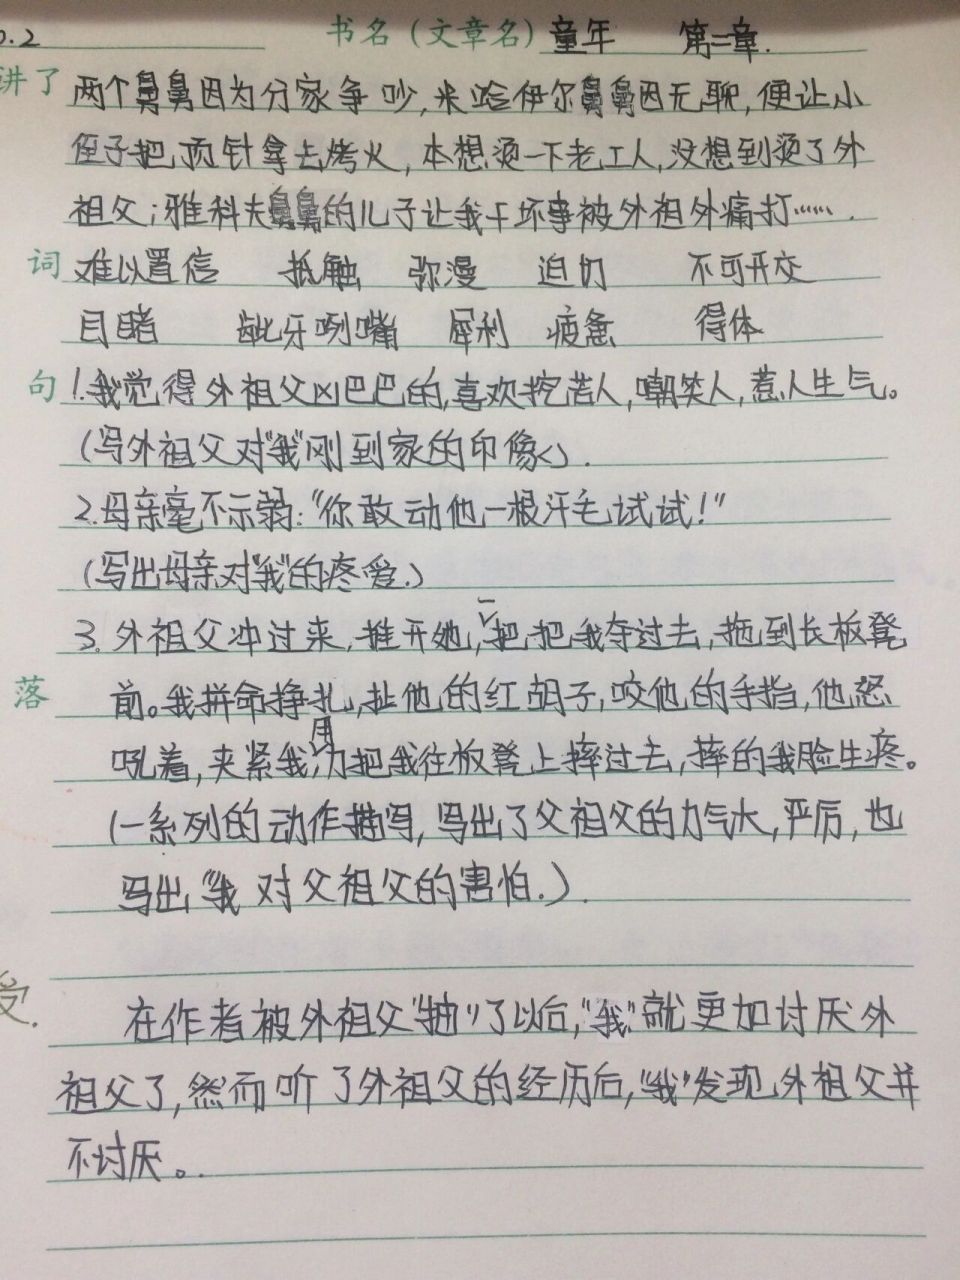 0.2 书名（文章名）童年 第二章.
讲了 两个舅舅因为分家争吵,米哈伊尔舅舅因无聊,便让小
侄子把顶针拿去烤火,本想烫一下老工人,没想到烫了外
祖父;雅科夫舅舅的儿子让我干坏事被外祖外痛打……
词 难以置信 抵触 弥漫 迫切 不可开交
目睹 龇牙咧嘴 犀利 疲惫 得体
句 1.我觉得外祖父凶巴巴的,喜欢挖苦人,嘲笑人,惹人生气。
(写外祖父对"我"刚到家的印像).
2.母亲毫不示弱:"你敢动他一根汗毛试试!"
(写出母亲对"我"的疼爱.)
3.外祖父冲过来,推开她,一把把我夺过去,拖到长板凳
落 前。我拼命挣扎,扯他的红胡子,咬他的手指,他怒
吼着,夹紧我,用力把我往板凳上摔过去,摔的我脸生疼。
(一系列的动作描写,写出了父祖父的力气大,严厉,也
写出"我对父祖父的害怕.).
受. 在作者被外祖父"抽"了以后,"我"就更加讨厌外
祖父了,然而听了外祖父的经历后,"我"发现外祖父并
不讨厌。